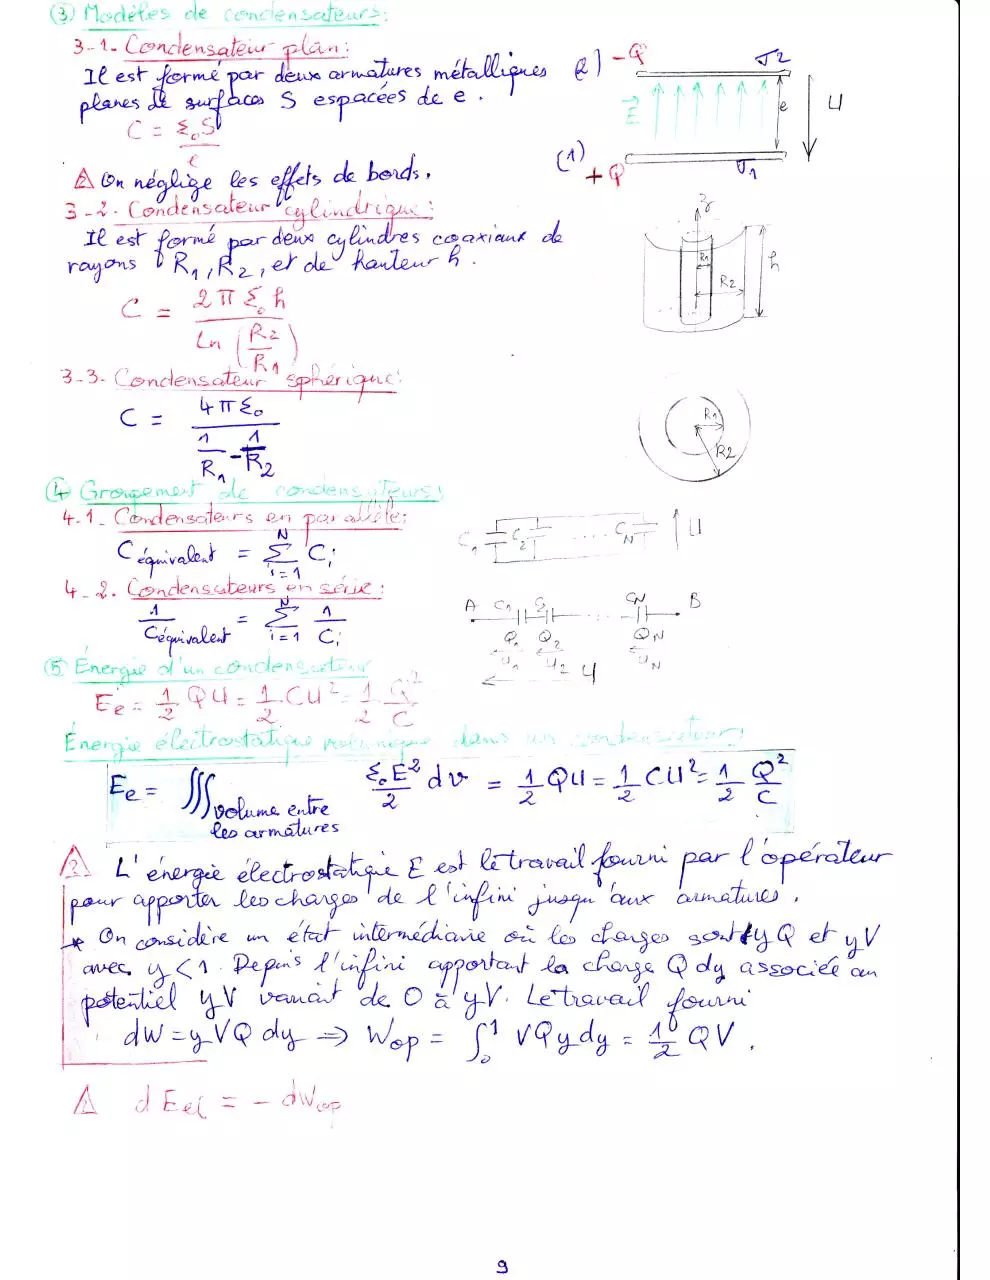 ③ Modèles de condensateurs:
3-1- Condensateur plan:
Il est formé par deux armatures métalliques
planes de surfaces S espacées de e.
C = ε₀S/e
(2) -Q
V2
E
e
U
(1) +Q
V1
⚠ On néglige les effets de bords.
3-2- Condensateur cylindrique:
Il est formé par deux cylindres coaxiaux de
rayons R₁, R₂, et de hauteur h.
C = 2πε₀h / Ln(R2/R1)
z
R1
R2
h
3-3- Condensateur sphérique:
C = 4πε₀ / (1/R₁ - 1/R₂)
R1
R2
④ Groupement de condensateurs:
4.1- Condensateurs en parallèle:
C équivalent = Σ_{i=1}^{N} Ci
C1 C2 ..... CN U
4-2. Condensateurs en série:
1/Céquivalent = Σ_{i=1}^{N} 1/Ci
A C1 C2 ... CN B
Q1 Q2 QN
U1 U2 UN
U
⑤ Énergie d'un condensateur
Ee = 1/2 QU = 1/2 CU² = 1/2 Q²/C
Énergie électrostatique dans un condensateur:
Ee = ∭ volume entre les armatures ε₀E²/2 dv = 1/2 QU = 1/2 CU² = 1/2 Q²/C
L'énergie électrostatique E est le travail fourni par l'opérateur
pour apporter les charges de l'infini jusqu'aux armatures.
* On considère un état intermédiaire où les charges sont yQ et yV
avec y < 1. Depuis l'infini apportant la charge Q dy associée au
potentiel yV variant de 0 à yV. Le travail fourni
dW = yVQ dy ⇒ Wop = ∫₀¹ VQydy = 1/2 QV.
⚠ dEel = - dWop
9